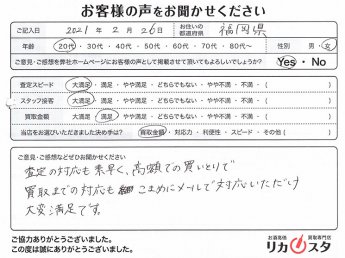 お客様の声をお聞かせください
ご記入日 2021年 2月 26日 お住いの都道府県 福岡県
年齢 20代・30代・40代・50代・60代・70代・80代〜 性別 男・女
ご意見・ご感想を弊社ホームページにお客様の声として掲載させて頂いてもよろしいでしょうか? Yes・No
査定スピード 大満足・満足・やや満足・どちらでもない・やや不満・不満・( )
スタッフ接客 大満足・満足・やや満足・どちらでもない・やや不満・不満・( )
買取金額 大満足・満足・やや満足・どちらでもない・やや不満・不満・( )
当店をお選びいただきました決め手は? 買取金額・対応力・利便性・スピード・その他( )
ご意見・ご感想などぜひお聞かせください
査定の対応も素早く、高額での買いとりで
買取までの対応も こまめにメールで対応いただけ
大変満足です。
ご協力ありがとうございました。
この度は誠にありがとうございました。
お酒高価買取専門店
リカスタ